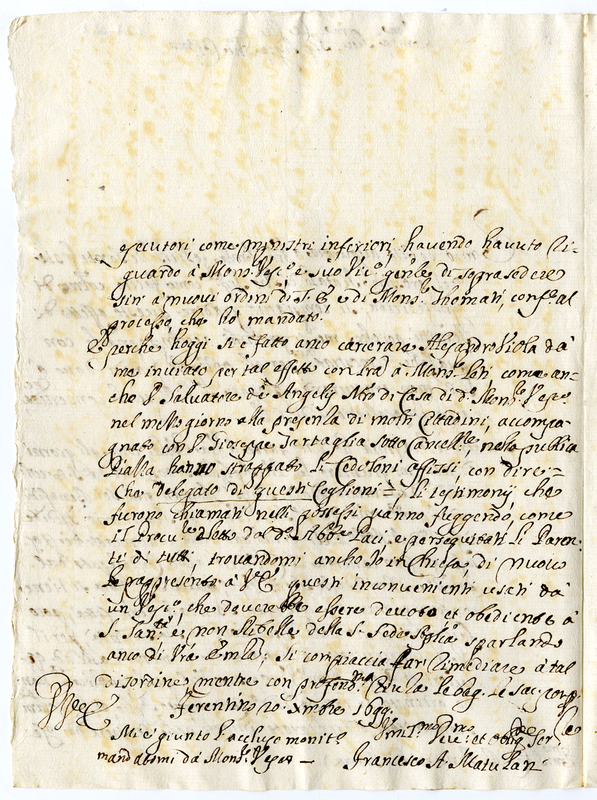 esecutori, come ministri inferiori, havendo havuto ri-
guardo à Mons.r Vesc.o e suo Vic.o gen'le di soprasedere
sin' à nuovi ordini di V. E. e di Mons.r Thomati, conf.e al
processo, che hò mandato.
E perche hoggi si è fatto anco carcerare Alesandro Viola da
me inviato per tal effetto con l'ra à Mons.r come an-
cho D. Salvatore de Angelis M'ro di Casa di d.o Mons.r Vesc.o
nel mezzo giorno alla presenza di molti Cittadini, accompa-
gnato con D. Gioseppe Tartaglia sotto Cancell.re, nella publica
Piazza hanno strappato li Cedoloni affissi, con dire =
Che delegato di questi Coglioni = li testimonij che
furono chiamati nelli possessi vanno fuggendo, come
il Procu.re dal d.o Abb.e Paci, e perseguitati li Paren-
ti di tutti, trovandomi ancho Io in Chiesa di nuovo
le rappresento à V. E. questi inconvenienti usati da
un Vesc.o, che doverebbe essere devoto et obediente à
S. San.tà e non Ribelle della S. Sede sparlando
anco di V'ra Em'za; Si compiaccia far rimediare à tal
disordine mentre con le bag. le sac.
Ferentino 20 Xmbre 1699.
Mi è giunto l'accluso monit.o
mandatomi da Mons.r Vesc.o —
Francesco A.